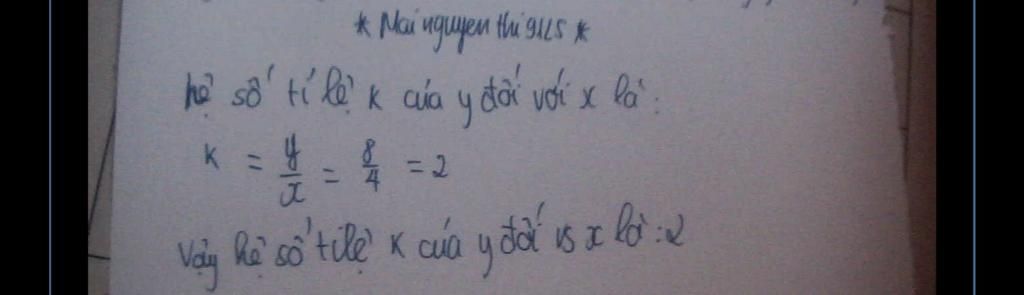 * Mai nguyen thi 9115 *
hệ số tỉ lệ K của y đối với x là:
K = y/x = 8/4 = 2
Vậy hệ số tỉ lệ K của y đối vs x là : 2